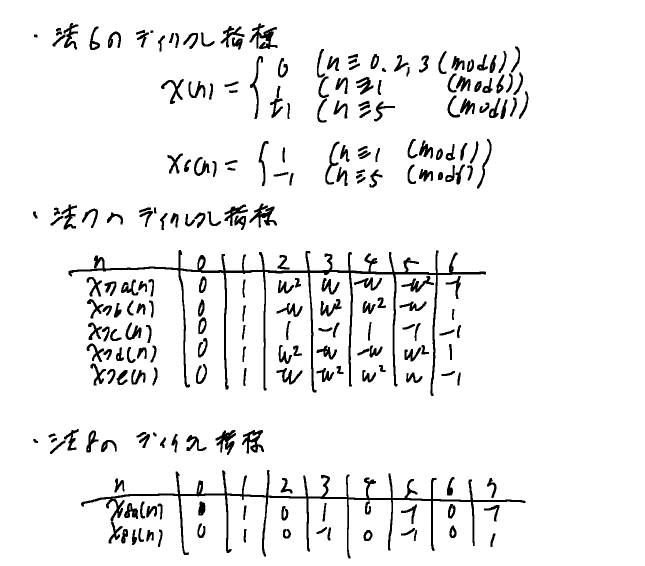 ・法6のディリクレ指標
χ(n) = { 0 (n≡0,2,3 (mod6))
1 (n≡1 (mod6))
±1 (n≡5 (mod6))
χ6(n) = { 1 (n≡1 (mod6))
-1 (n≡5 (mod6))
・法7のディリクレ指標
n | 0 | 1 | 2 | 3 | 4 | 5 | 6
χ7a(n) | 0 | 1 | ω² | ω | -ω | -ω² | -1
χ7b(n) | 0 | 1 | -ω | ω² | ω² | -ω | 1
χ7c(n) | 0 | 1 | 1 | -1 | 1 | -1 | -1
χ7d(n) | 0 | 1 | ω² | -ω | -ω | ω² | 1
χ7e(n) | 0 | 1 | -ω | -ω² | ω² | ω | -1
・法8のディリクレ指標
n | 0 | 1 | 2 | 3 | 4 | 5 | 6 | 7
χ8a(n) | 0 | 1 | 0 | 1 | 0 | -1 | 0 | -1
χ8b(n) | 0 | 1 | 0 | -1 | 0 | -1 | 0 | 1